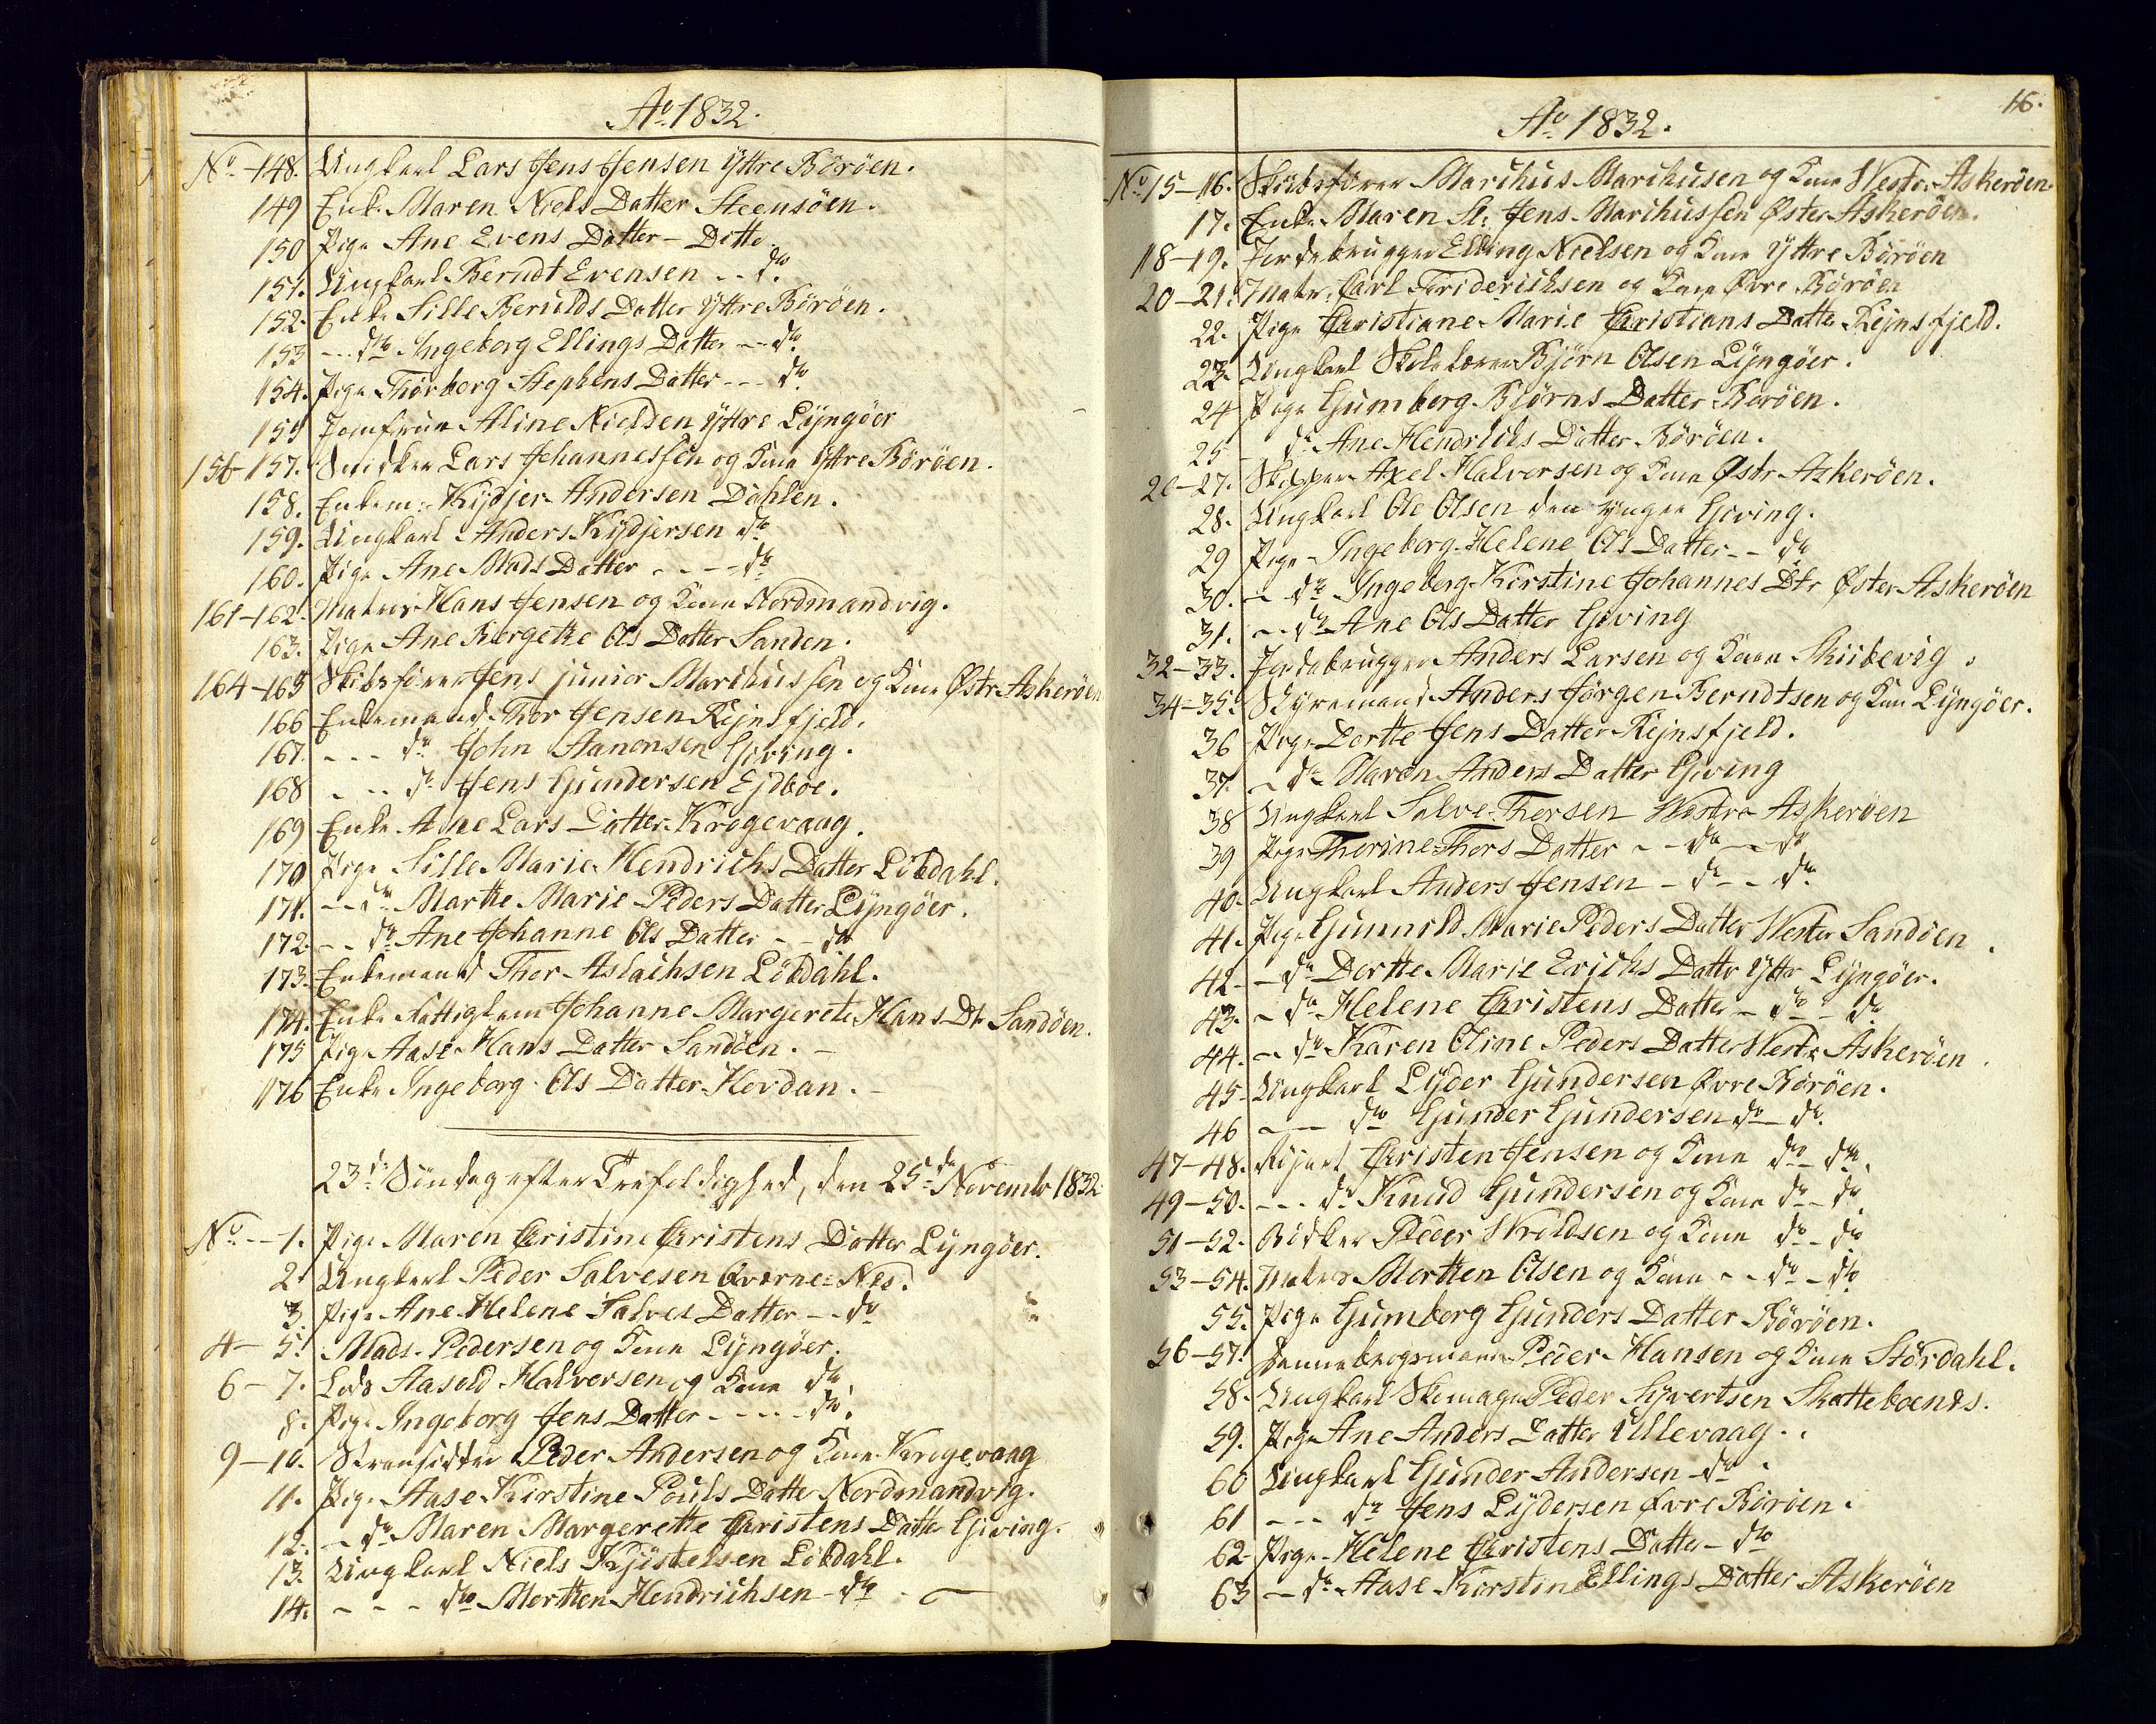 Ao 1832.
No - 148. Ungkarl Lars Jens Jensen Yttre Böröen.
149 Enke Maren Niels Datter Steensöen.
150 Pige Ane Evens Datter - Ditto
151. Ungkarl Berndt Evensen - - do
152. Enke Sille Berulds Datter Yttre Böröen.
153 - - do Ingeborg Ellings Datter - - do
154. Pige Thorborg Stephens Datter - - - do
155 Jomfrue Aline Nielsen Yttre Lyngöer
156-157. Snidker Lars Johannessen og Kone Yttre Böröen.
158. Enkem: Kydjer Andersen Dahlen.
159. Ungkarl Anders Kydjersen do
160. Pige Ane Mads Datter - - - - do
161-162. Matros Hans Jensen og Kone Nordmandvig.
163. Pige Ane Borgette Ols Datter Sanden.
164-165 Skibsförer Jens junior Marchussen og Kone Östr Askeröen
166 Enkemand Thor Jensen Rejnsfjeld.
167. - - - do John Aanonsen Gjeving.
168 - - - do Jens Gundersen Ejdboe.
169 Enke Ane Lars Datter Krogevaag.
170 Pige Sille Marie Hendrichs Datter Löbdahl.
171. - - do Marthe Marie Peders Datter Lyngöer.
172. - - do Ane Johanne Ols Datter - - do
173. Enkemand Thor Aslachsen Löbdahl.
174. Enke Fattiglem Johanne Margerete Hans Dr Sandöen.
175 Pige Aase Hans Datter Sandöen. -
176 Enke Ingeborg Ols Datter Hovdan. -
23de Söndag efter Trefoldighed, den 25de Novembr 1832
No - - 1. Pige Maren Christine Christens Datter Lyngöer.
2. Ungkarl Peder Salvesen Qværne-Næs.
3. Pige Ane Helene Salves Datter - - do
4 - 5. Mads Pedersen og Kone Lyngöer.
6 - 7. Lods Aasold Halversen og Kone do
8. Pige Ingeborg Jens Datter - - - - do.
9 - 10. Strandsidder Peder Andersen og Kone Krogevaag
11. Pige Aase Kirstine Pouls Datter Nordmandvig.
12. - do Maren Margerette Christens Datter Gjeving.
13. Ungkarl Niels Kjöstelsen Löbdahl.
14. - - - do Morthen Hendrichsen - do -
16.
Ao 1832.
No 15-16. Skibsförer Marchus Marchusen og Kone Westr. Askeröen
17. Enke Maren Sl: Jens Marchussen Öster Askeröen.
18-19. Jordebrugger Elling Nielsen og Kone Yttre Böröen
20-21. Matr. Carl Friderichsen og Kone Övre Böröen
22. Pige Christiane Marie Christians Datter Rejnsfjeld.
23. Ungkarl Skolelærer Björn Olsen Lyngöer.
24 Pige Gumborg Björns Datter Böröen.
25 - do Ane Hendrichs Datter Böröen.
26-27. Skipper Axel Halversen og Kone Östr Askeröen.
28. Ungkarl Ole Olsen den yngre Gjeving.
29 Pige Ingeborg Helene Ols Datter - - do
30. - do Ingeborg Kirstine Johannes Dtr Öster Askeröen
31. - - do Ane Ols Datter Gjeving
32-33. Jordebrugger Anders Larsen og Kone Skiibevig.
34-35. Styremand Anders Jörgen Berndtsen og Kone Lyngöer.
36 Pige Dorthe Jens Datter Rejnsfjeld.
37. - do Maren Anders Datter Gjeving
38 Ungkarl Salve Thorsen Westre Askeröen
39 Pige Thorine Thors Datter - - do - do
40. Ungkarl Anders Jensen - do - - do
41. Pige Gunnild Marie Peders Datter Wester Sandöen.
42. - do Dorthe Marie Erichs Dattr Yttr Lyngöer.
43. - do Helene Christens Datter - do - do
44. - do Karen Oline Peders Datter Westr Askeröen.
45. Ungkarl Lyder Gundersen Övre Böröen.
46 - - - do Gunder Gundersen do - do.
47-48. Christen Jensen og Kone do - do.
49-50. - - - do Knud Gundersen og Kone do - do
51-52. Bödker Peder Wroldsen og Kone do - do
53-54. Matros Morthen Olsen og Kone - - do - do
55. Pige Gumborg Gunders Datter Böröen.
56-57. Dannebrogsmand Peder Hansen og Kone Stördahl.
58. Ungkarl Skomager Peder Syvertsen Skatteboenæs.
59. Pige Ane Anders Datter Ullevaag.
60 Ungkarl Gunder Andersen do.
61 - - - do Jens Lydersen Övre Böröen.
62 Pige Helene Christens Datter - do
63 - do Aase Kirstine Ellings Datter Askeröen